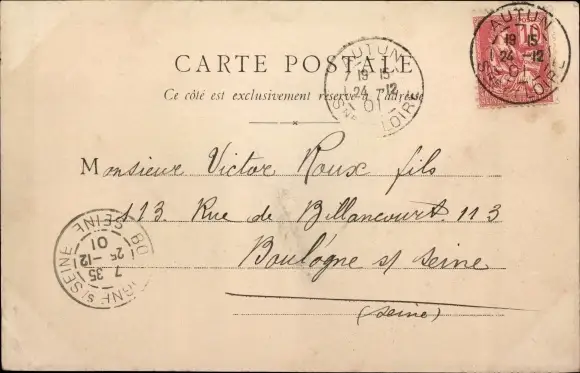 CARTE POSTALE
Ce côté est exclusivement réservé à l'adresse
AUTUN
19 15
24 -12
01
SNE & LOIRE
AUTUN
19 15
24 -12
01
SNE & LOIRE
10
Monsieur Victor Roux fils
113. Rue de Billancourt. 113
Boulogne s/ Seine
(Seine)
7 35
25 -12
01
GNE S/ SEINE
SEINE